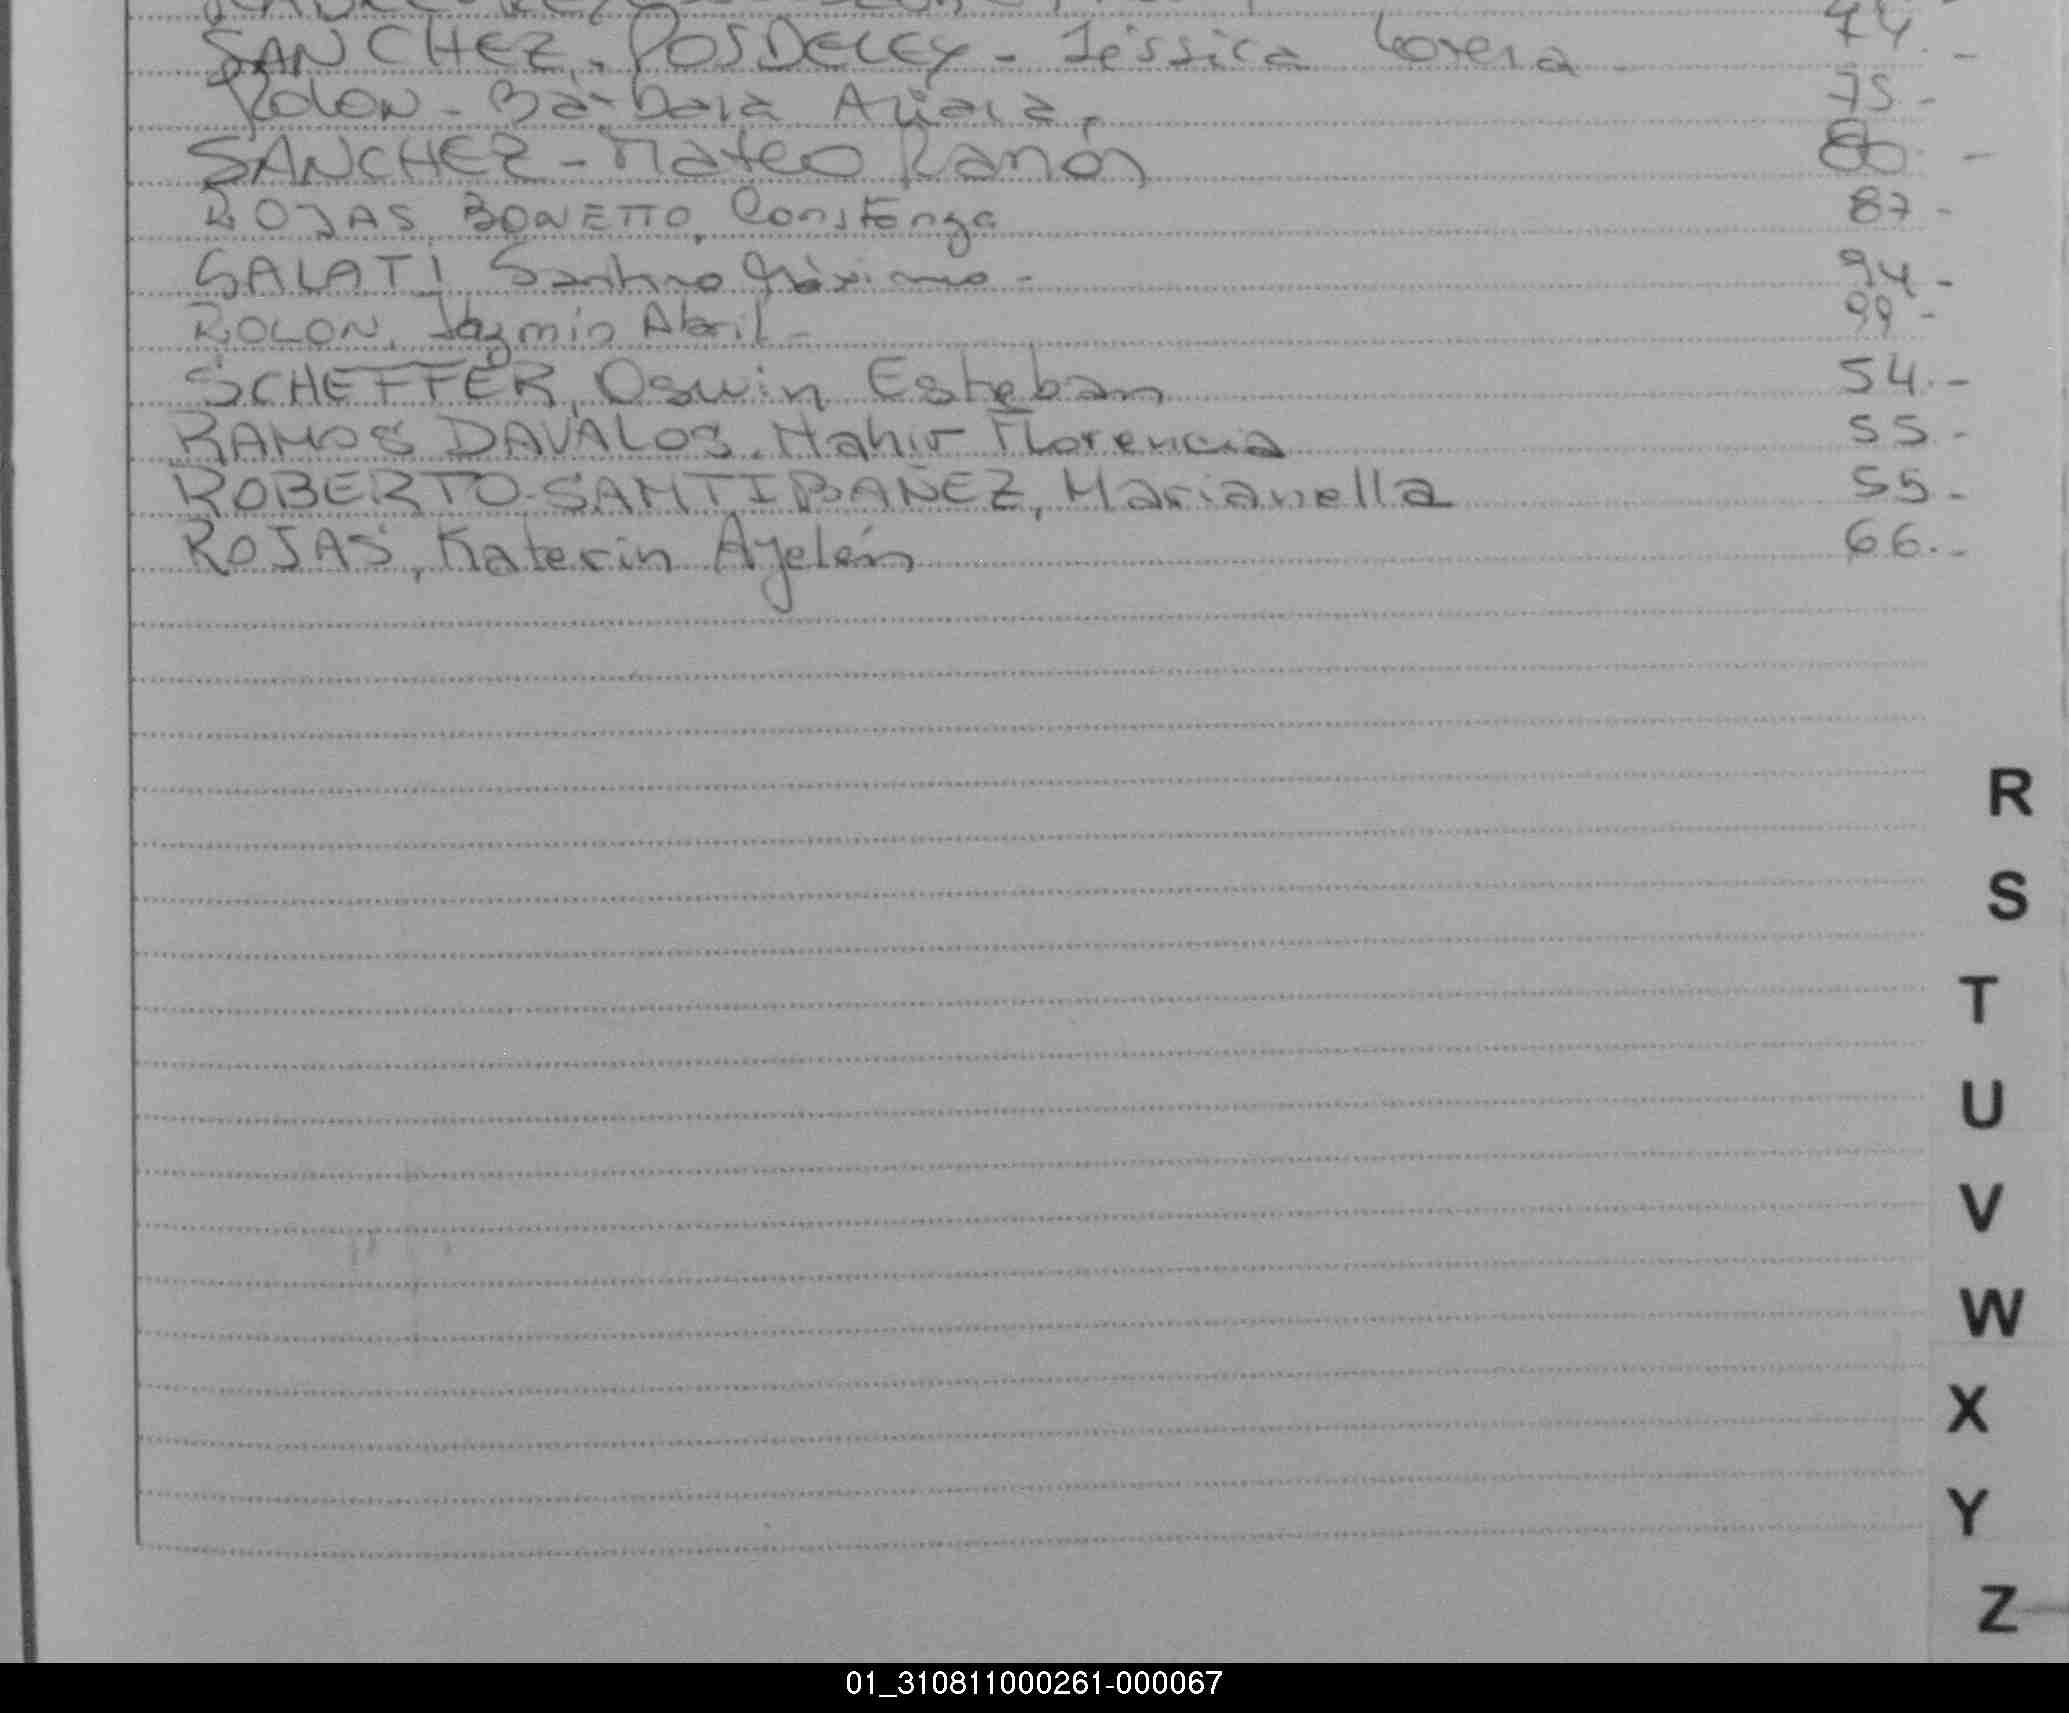 SANCHEZ - POSDELEY - Jéssica Lorena - 74 -
Rolon - Bárbara Aliara, 75 -
SANCHEZ - Mateo Ramón 80 -
ROJAS BONETTO, Constanza 87 -
SALATI, Santino Máximo - 94 -
ROLON, Jazmín Abril - 99 -
SCHEFFER, Oswin Esteban 54.-
RAMOS DAVALOS, Nahir Florencia 55.-
ROBERTO-SANTIBAÑEZ, Marianella 55.-
ROJAS, Katerin Ayelén 66.-
R
S
T
U
V
W
X
Y
Z
01_310811000261-000067